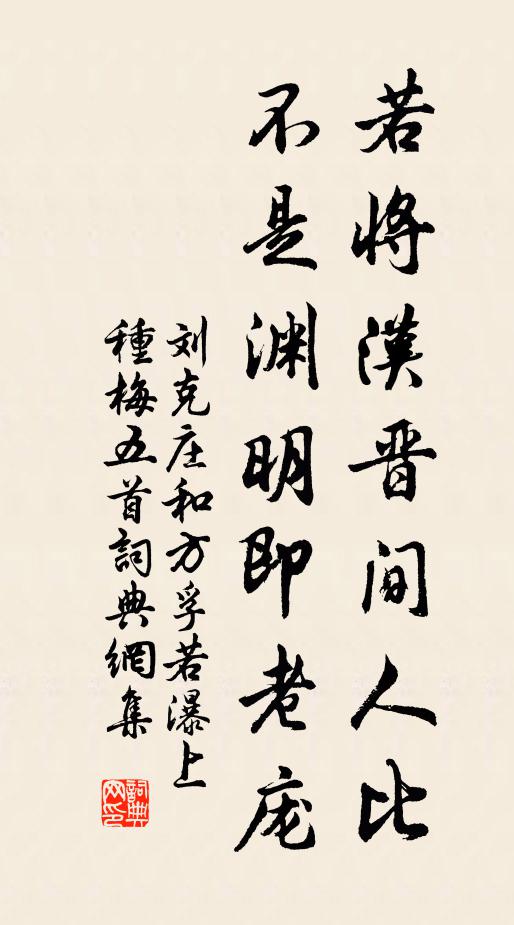 若将漢晋间人比
不是渊明即老庞
刘克庄和方孚若瀑上
種梅五首詞典網集
詞典
网印